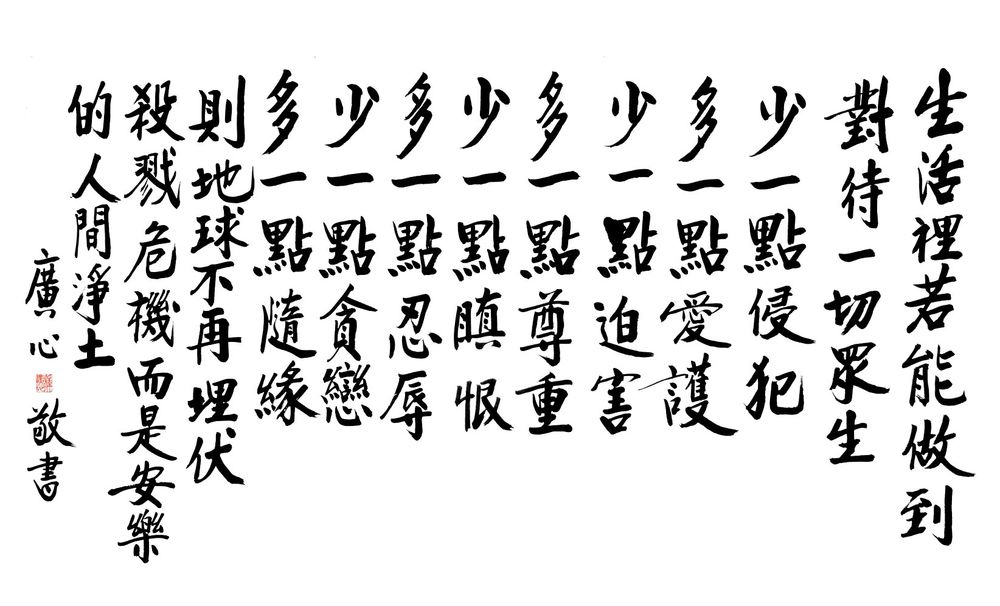 生活裡若能做到
對待一切眾生
少一點侵犯
多一點愛護
少一點迫害
多一點尊重
少一點瞋恨
多一點忍辱
少一點貪戀
多一點隨緣
則地球不再埋伏
殺戮危機而是安樂
的人間淨土
廣心 敬書